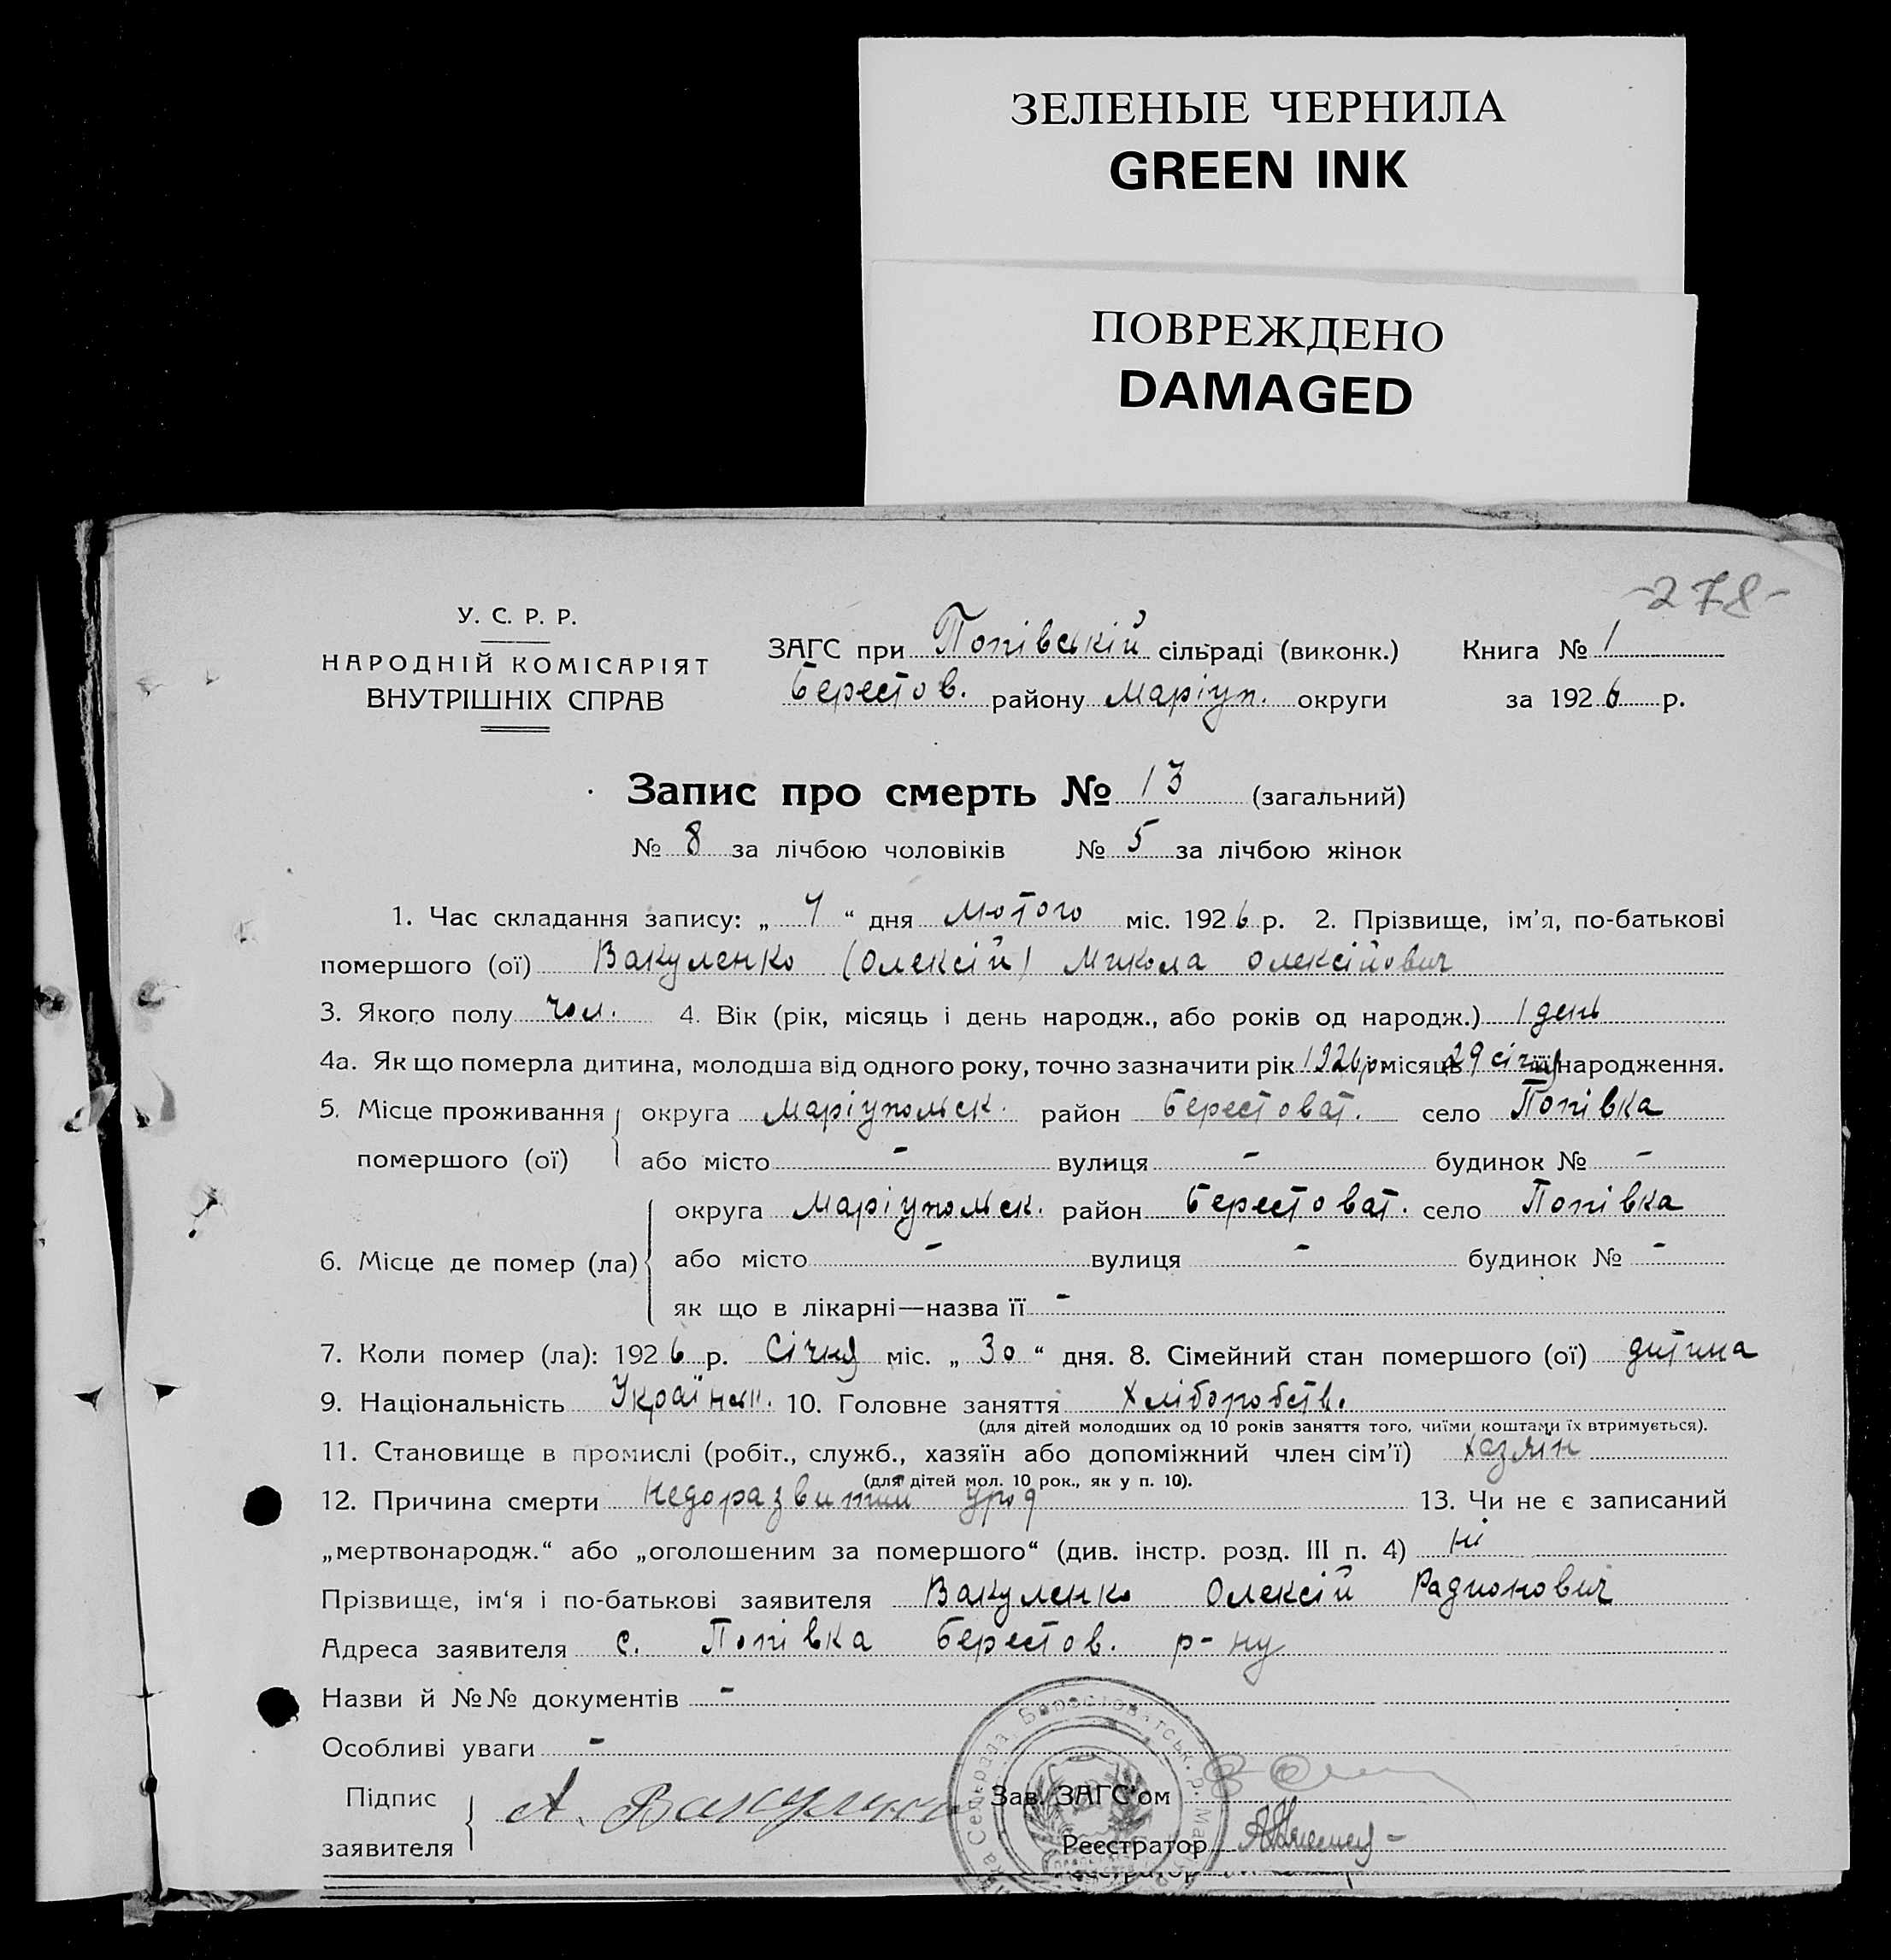 ЗЕЛЕНЫЕ ЧЕРНИЛА
GREEN INK
ПОВРЕЖДЕНО
DAMAGED
-278-
У. С. Р. Р.
НАРОДНІЙ КОМІСАРІЯТ
ВНУТРІШНІХ СПРАВ
ЗАГС при Попівській сільраді (виконк.) Книга № 1
Берестов. району Маріуп. округи за 1926 р.
Запис про смерть № 13 (загальний)
№ 8 за лічбою чоловіків № 5 за лічбою жінок
1. Час складання запису: „ 4 “ дня Лютого міс. 1926 р. 2. Прізвище, ім’я, по-батькові
помершого (ої) Вакуленко (Олексій) Микола Олексійович
3. Якого полу чол. 4. Вік (рік, місяць і день народж., або років од народж.) 1 день
4а. Як що померла дитина, молодша від одного року, точно зазначити рік 1926 р місяць 29 січня її народження.
5. Місце проживання округа Маріупольск. район Берестоват. село Попівка
помершого (ої) або місто - вулиця - будинок № -
округа Маріупольск. район Берестоват. село Попівка
6. Місце де помер (ла) або місто - вулиця - будинок № -
як що в лікарні—назва її -
7. Коли помер (ла): 1926 р. Січня міс. „ 30 “ дня. 8. Сімейний стан помершого (ої) дитина
9. Національність 10. Головне заняття Хліборобств.
(для дітей молодших од 10 років заняття того, чиїми коштами їх втримується).
11. Становище в промислі (робіт., служб., хазяїн або допоміжний член сім’ї) хазяїн
(для дітей мол. 10 рок., як у п. 10).
12. Причина смерти урод 13. Чи не є записаний
„мертвонародж.“ або „оголошеним за помершого“ (див. інстр. розд. III п. 4) ні
Прізвище, ім‘я і по-батькові заявителя Вакуленко Олексій Радионович
Адреса заявителя с. Попівка Берестов. р-ну
Назви й №№ документів -
Особливі уваги -
Підпис
заявителя А. Вакуленко
Зав. ЗАГС’ом
Реєстратор